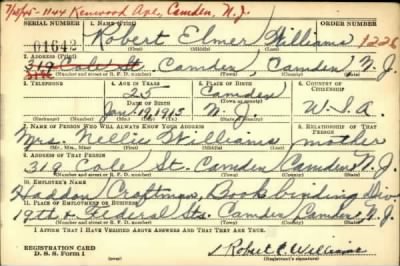 7/25/45-1144 Kenwood Ave, Camden, N.J.
SERIAL NUMBER 1. NAME (Print) ORDER NUMBER
01642 Robert Elmer Williams 1226
(First) (Middle) (Last)
2. ADDRESS (Print)
319 Cole St. Camden, Camden, N.J.
(Number and street or R. F. D. number) (Town) (County) (State)
3. TELEPHONE 4. AGE IN YEARS 5. PLACE OF BIRTH 6. COUNTRY OF CITIZENSHIP
25 Camden
DATE OF BIRTH (Town or county)
Jan. 1915 N.J. U.S.A.
(Exchange) (Number) (Mo.) (Day) (Yr.) (State or country)
7. NAME OF PERSON WHO WILL ALWAYS KNOW YOUR ADDRESS 8. RELATIONSHIP OF THAT PERSON
Mrs. Nellie Williams mother
(Mr., Mrs., Miss) (First) (Middle) (Last)
9. ADDRESS OF THAT PERSON
319 Cole St. Camden Camden N.J.
(Number and street or R. F. D. number) (Town) (County) (State)
10. EMPLOYER'S NAME
Haddon Craftman, Book binding Div.
11. PLACE OF EMPLOYMENT OR BUSINESS
19th & Federal Sts. Camden Camden N.J.
(Number and street or R. F. D. number) (Town) (County) (State)
I AFFIRM THAT I HAVE VERIFIED ABOVE ANSWERS AND THAT THEY ARE TRUE.
REGISTRATION CARD
D. S. S. Form 1
Robert E Williams
(Registrant's signature)